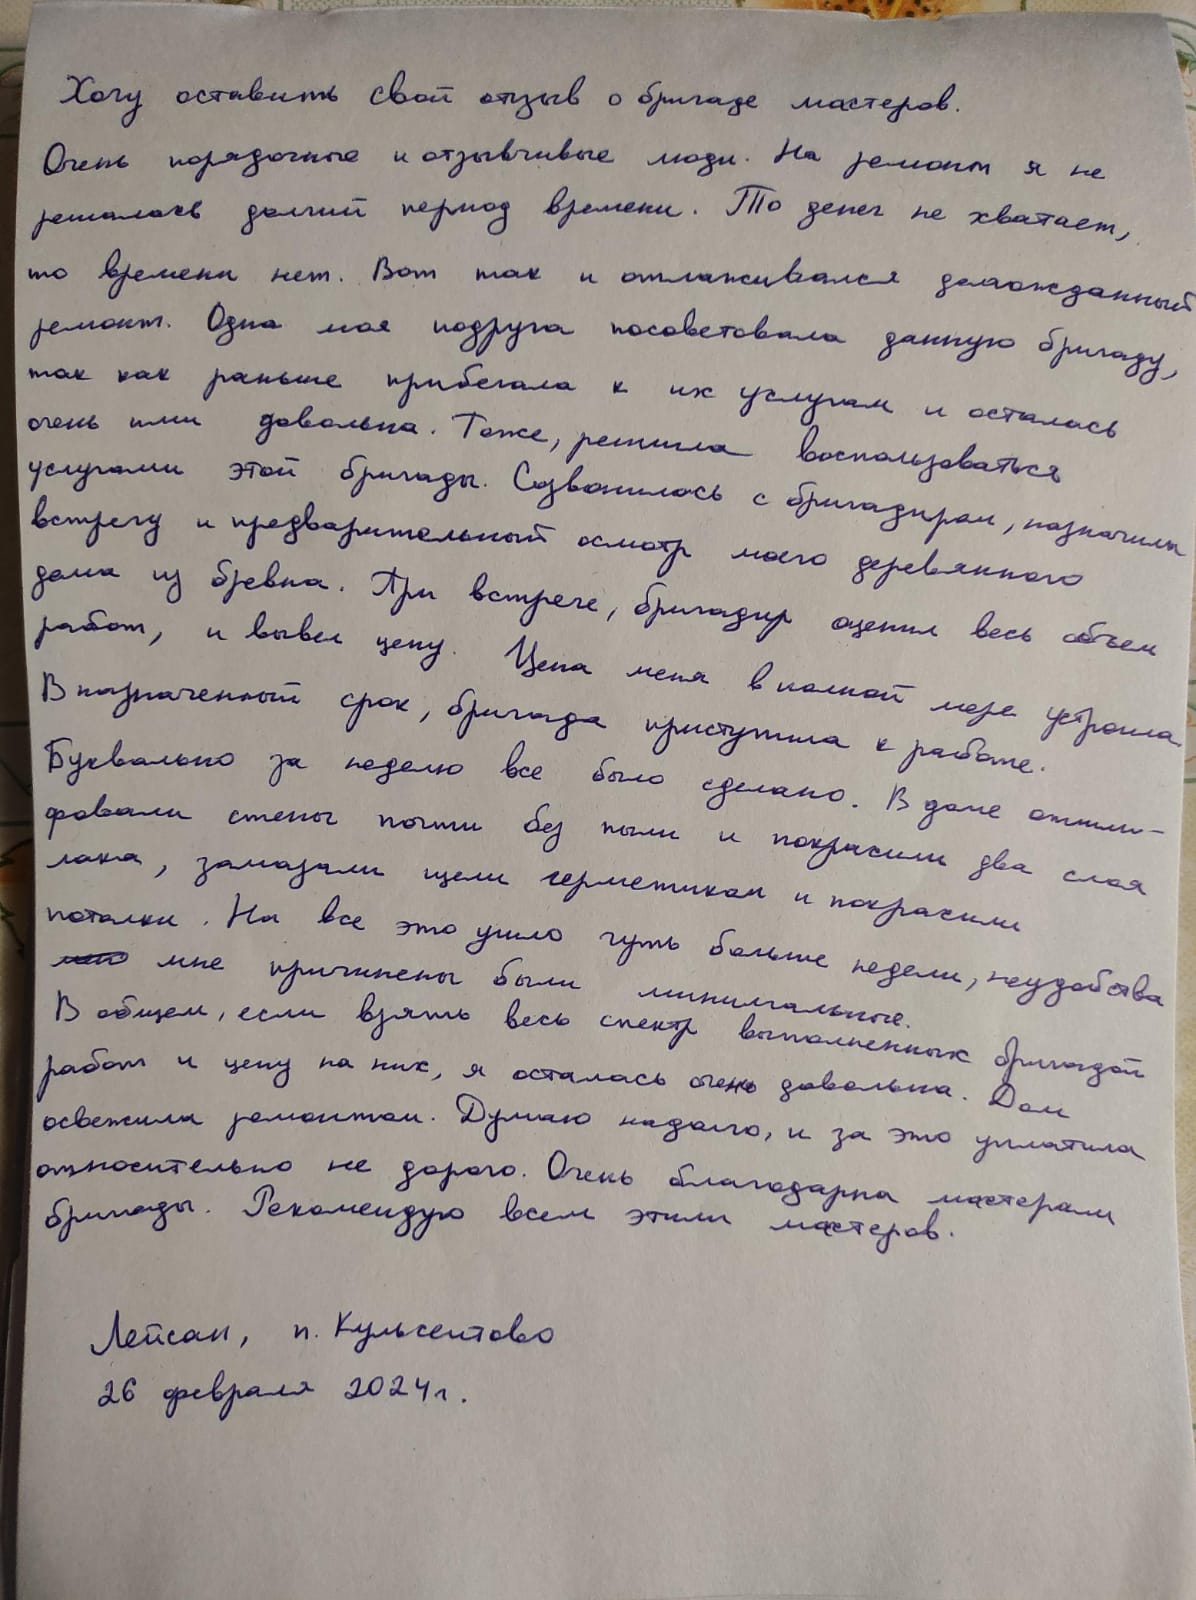 Хочу оставить свой отзыв о бригаде мастеров.
Очень порядочные и отзывчивые люди. На ремонт я не
решалась долгий период времени. То денег не хватает,
то времени нет. Вот так и отлаживался долгожданный
ремонт. Одна моя подруга посоветовала данную бригаду,
так как раньше прибегала к их услугам и осталась
очень ими довольна. Тоже, решила воспользоваться
услугами этой бригады. Созвонилась с бригадиром, назначили
встречу и предварительный осмотр моего деревянного
дома из бревна. При встрече, бригадир оценил весь объем
работ, и вывел цену. Цена меня в полной мере устроила.
В назначенный срок, бригада приступила к работе.
Буквально за неделю все было сделано. В доме отшли-
фовали стены почти без пыли и покрасили два слоя
лака, замазали щели герметиком и покрасили
потолки. На все это ушло чуть больше недели, неудобства
мне причинены были минимальные.
В общем, если взять весь спектр выполненных бригадой
работ и цену на них, я осталась очень довольна. Дом
освежила ремонтом. Думаю надолго, и за это уплатила
относительно не дорого. Очень благодарна мастерам
бригады. Рекомендую всем этили мастеров.
Лейсан, п. Кульсеитово
26 февраля 2024г.